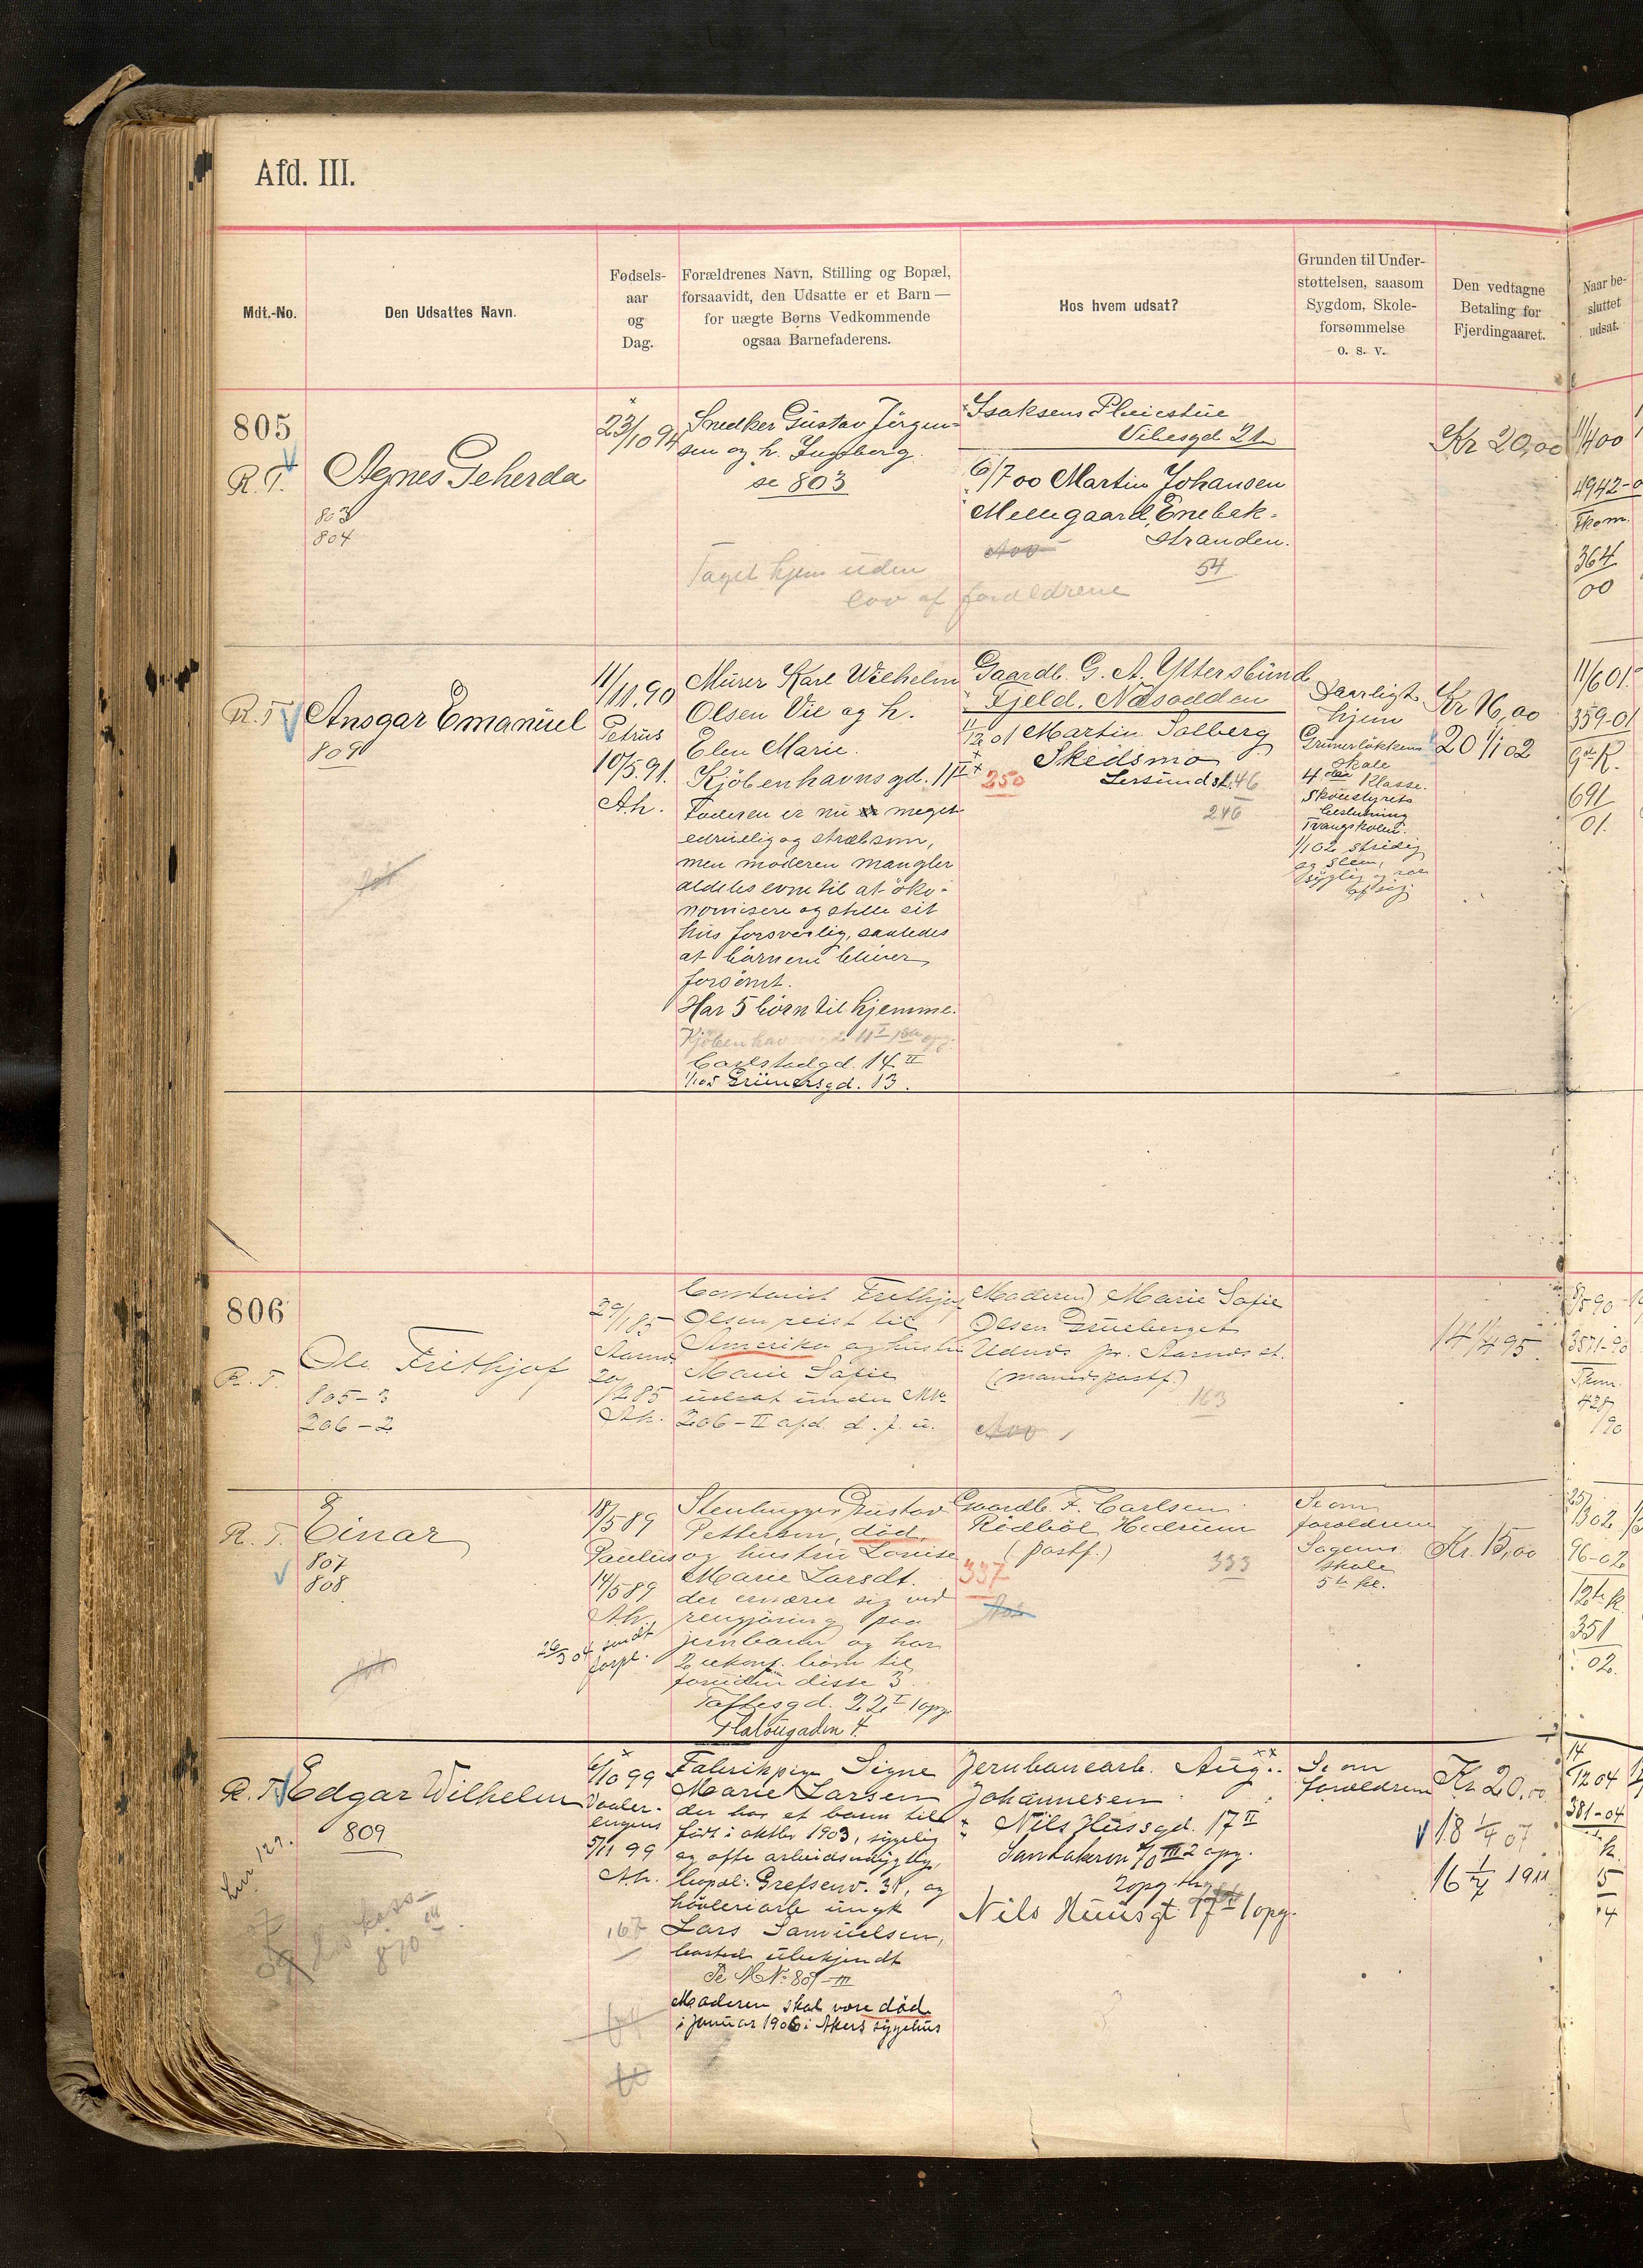 Afd. III.
Mdt.-No.
Den Udsattes Navn.
Fødsels-
aar
og
Dag.
Forældrenes Navn, Stilling og Bopæl,
forsaavidt, den Udsatte er et Barn —
for uægte Børns Vedkommende
ogsaa Barnefaderens.
Hos hvem udsat?
Grunden til Under-
støttelsen, saasom
Sygdom, Skole-
forsømmelse
o. s. v.
Den vedtagne
Betaling for
Fjerdingaaret.
Naar be-
sluttet
udsat.
805
R. T.
Agnes Geherda
803
804
23/10 94
Snedker Gustav Jörgen-
sen og h. Ingeberg.
se 803
Taget hjem uden
lov af forældrene
Isaksens Pleiestue
Vibesgd 21
6/7 00 Martin Johansen
Mellegaard, Enebak-
stranden.
54
Kr 20,00
11/4 00
4942-0
Fkom.
364
00
R. T.
Ansgar Emanuel
809
11/11.90
Petrus
10/5.91.
A.h.
Murer Karl Wilhelm
Olsen Vie og h.
Elen Marie.
Kjöbenhavnsgd. 11 I
Faderen er nu meget
edruelig og stræbsom,
men moderen mangler
aldeles evne til at öko-
nomisere og stelle sit
hus forsvarlig, saaledes
at börnene bliver
forsömt.
Har 5 börn til hjemme.
Carlstadgd. 14 II
1/1 05 Grünersgd. 13.
Gaardb. G. A. Yttersbund
Fjeld. Næsodden
1/12 01 Martin Solberg
Skedsmo
250
Lersund st. 46
246
Daarligt
hjem
Grünerlökkens
skole
4de Klasse.
Skolestyrets
beslutning
Tvangskolen.
1/1 02 stridig
og slem,
af sig
Kr 16,00
20 1/1 02
11/6 01.
359-01
Gr. K.
691
01.
806
R. T.
Ole Frithjof
805-3
206-2
29/1 85
Aarnes
20/12 85
A.h.
Frithjof
Olsen reist til
Amerika og hustru
Marie Sofie
udsat under M.No
206-II afd d. f. u.
Moderen Marie Sofie
Olsen Grueberget
Udnes pr. Aarnes st.
163
14 1/4 95
3571-90
Fkom.
428
/90
R. T.
Einar
807
808
18/5 89
Paulus
14/5 89
A.h.
26/3 04 sendt
forpl.
Stenhugger Gustav
Pettersen, död,
og hustru Louise
Marie Larsdt.
der ernærer sig ved
rengjöring paa
jernbanen og har
2 ukonf. börn til
foruden disse 3.
Toftesgd. 22 I 1 opg.
Platougaden 4.
Gaardb. F. Carlsen
Rödböl Hedrum
(postf.)
337
333
Se om
forældrene
Sagens
skole
5te kl.
Kr. 15,00
25/3 02
96-02
12te k.
351
02.
R. T.
Edgar Wilhelm
809
6/10 99
Vaaler-
engens
5/11 99
A.h.
167
Fabrikpige Signe
Marie Larsen
der har et barn til
födt i oktbr 1903, sygelig
og ofte arbeidsudygtig,
bopæl: Grefsenv. 31, og
hövleriarb ungk
Lars Samuelsen,
bosted ubekjendt
Se M No 809-III
Moderen skal være död
i januar 1906 i Akers sygehus
Jernbanearb. Aug.
Johannesen
Nils Hussgd. 17 II
2 opg.
Nils Huusgt 17 II 1 opg.
Se om
forældrene
Kr. 20,00
18 1/4 07
16 1/4 1911
14/12 04
381-04
k.
5